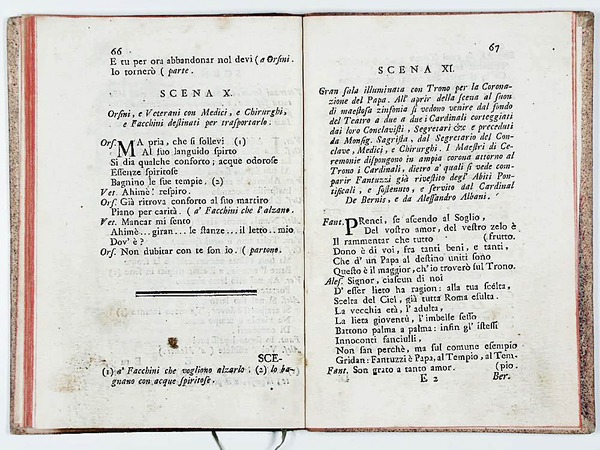 66
E tu per ora abbandonar nol devi (a Orsini.
Io tornerò (parte.
SCENA X.
Orsini, e Veterani con Medici, e Chirurghi,
e Facchini destinati per trasportarlo.
Ors. MA pria, che si sollevi (1)
Al suo languido spirto
Si dia qualche conforto; acque odorose
Essenze spiritose
Bagnino le sue tempie. (2)
Vet. Ahimè! respiro.
Ors. Già ritrova conforto al suo martiro
Piano per carità. (a' Facchini che l'alzano.
Vet. Mancar mi sento
Ahimè...giran... le stanze...il letto..mio
Dov'è?
Ors. Non dubitar con te son io. (partono.
SCE-
(1) a' Facchini che vogliono alzarlo. (2) lo ba-
gnano con acque spiritose.
67
SCENA XI.
Gran sala illuminata con Trono per la Corona-
zione del Papa. All' aprir della scena al suon
di maestosa zinfonia si vedono venire dal fondo
del Teatro a due a due i Cardinali corteggiati
dai loro Conclavisti, Segretari &c e preceduti
da Monsig. Sagrista, dal Segretario del Con-
clave, Medici, e Chirurghi. I Maestri di Ce-
remonie dispongono in ampia corona attorno al
Trono i Cardinali, dietro a' quali si vede com-
parir Fantuzzi già rivestito degl' Abiti Pon-
tificali, e sostenuto, e servito dal Cardinal
De Bernis, e da Alessandro Albani.
Fant. PRenci, se ascendo al Soglio,
Del vostro amor, del vostro zelo è
Il rammentar che tutto (frutto.
Dono è di voi, fra tanti beni, e tanti,
Che d' un Papa al destino uniti sono
Questo è il maggior, ch'io troverò sul Trono.
Ales. Signor, ciascun di noi
D' esser lieto ha ragion: alla tua scelta,
Scelta del Ciel, già tutta Roma esulta.
La vecchia età, l' adulta,
La lieta gioventù, l' imbelle sesso
Battono palma a palma: infin gl' istessi
Innocenti fanciulli.
Non san perchè, ma sul comune esempio
Gridan: Fantuzzi è Papa, al Tempio, al Tem-
Fant. Son grato a tanto amor. (pio.
E 2 Ber.